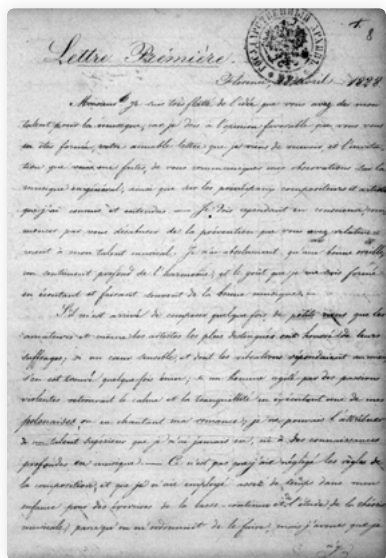 Lettre Prémière.
Florence, Avril 1828
Monsieur! Je suis très flatté de l'idée que vous avez de mon
talent pour la musique, car je dois à l'opinion favorable que vous vous
en êtes formée, votre aimable lettre que je viens de recevoir, et l'invita-
tion que vous me faites, de vous communiquer mes observations sur la
musique en général, ainsi que sur les principaux compositeurs et artistes
que j'ai connus et entendus. Je dois cependant en conscience com-
mencer par vous désabuser de la prévention que vous avez relative-
ment à mon talent musical. Je n'ai absolument qu'une bonne oreille,
un sentiment profond de l'harmonie, et le goût que je me suis formé
en écoutant et faisant souvent de la bonne musique.
S'il m'est arrivé de composer quelque fois de petits riens que les
amateurs et même les artistes les plus distingués ont honoré de leurs
suffrages; si un cœur sensible, et dont les vibrations répondaient au mien
s'en est trouvé quelque fois ému; si un homme agité par des passions
violentes retrouvait le calme et la tranquillité en écoutant une de mes
polonaises ou en chantant ma romance; je ne pouvais l'attribuer
à un talent supérieur que je n'ai jamais eu, ni à des connaissances
profondes en musique. — Ce n'est pas que j'aie négligé les règles de
la composition, et que je n'aie employé assez de temps dans mon
enfance pour des exercices de la basse-continue et l'étude de la théorie
musicale, parcequ'on m'ordonnait de le faire; mais j'avoue que je